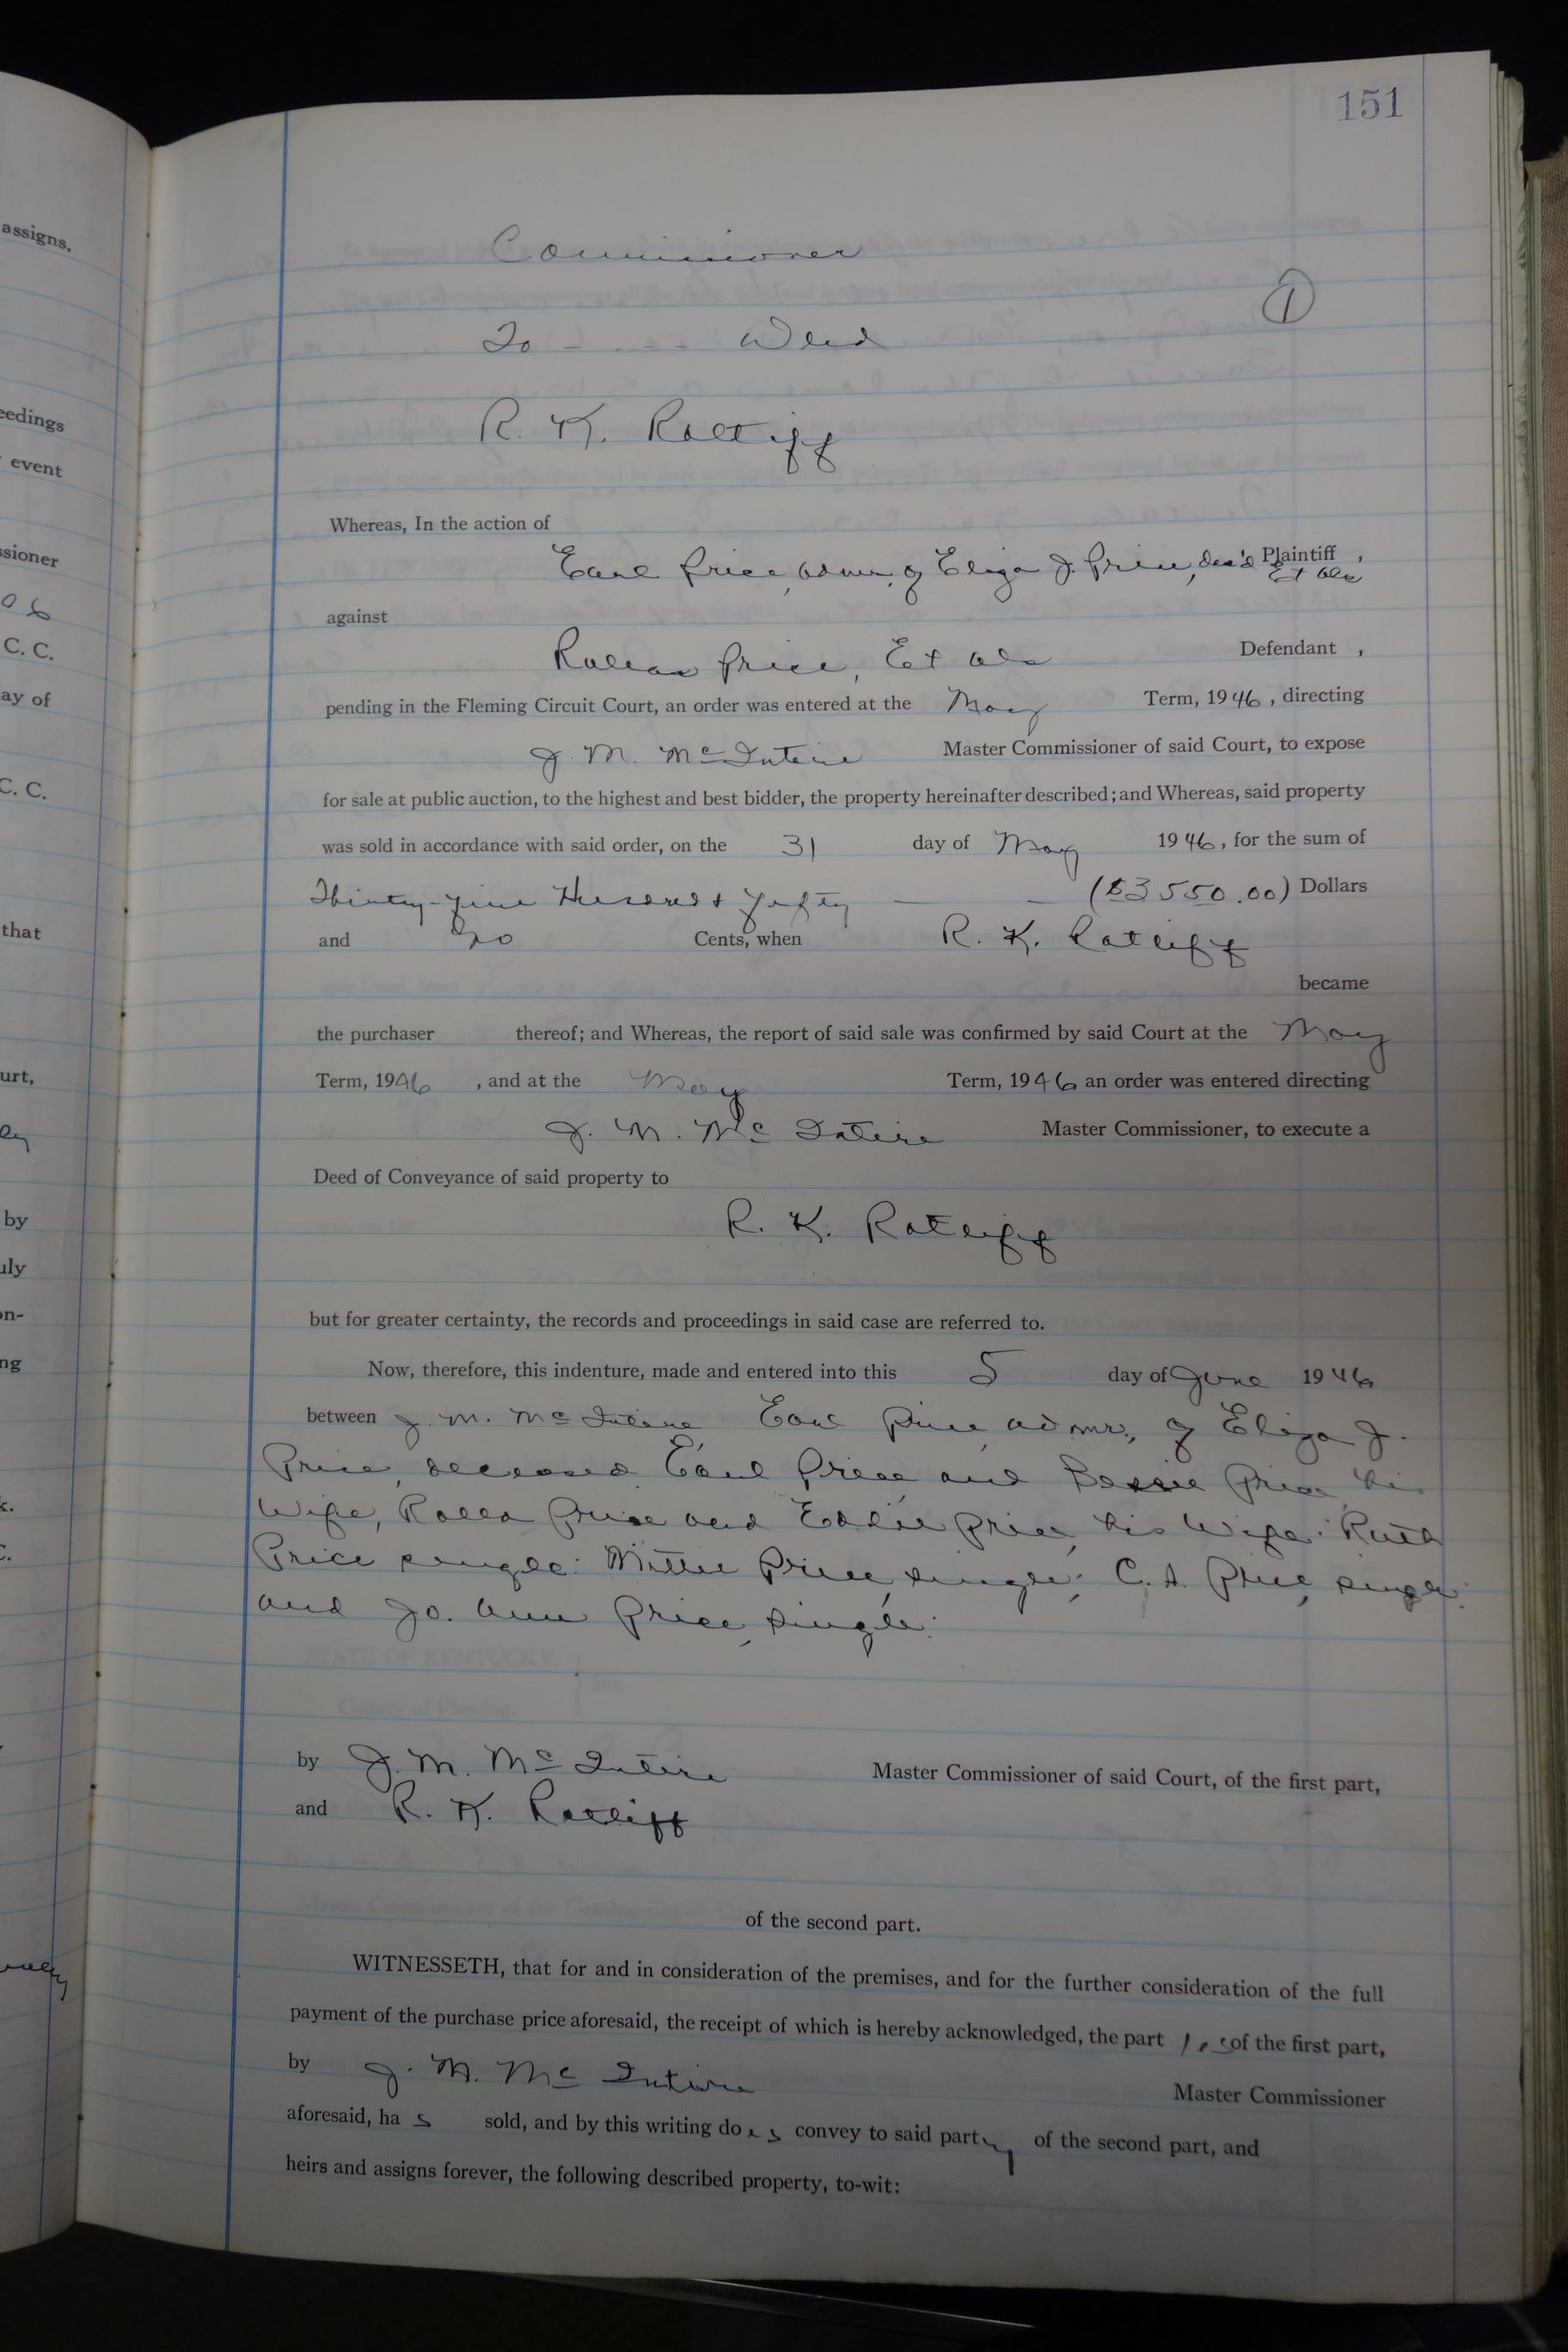 151
Commissioner
①
To - - - - Deed
R. K. Ratliff
Whereas, In the action of
Earl Price, admr, of Eliza J. Price, dec'd Plaintiff , Et als
against
Rolla Price, Et als Defendant ,
pending in the Fleming Circuit Court, an order was entered at the May Term, 1946, directing
J. M. McIntire Master Commissioner of said Court, to expose
for sale at public auction, to the highest and best bidder, the property hereinafter described; and Whereas, said property
was sold in accordance with said order, on the 31 day of May 1946, for the sum of
Thirty-five Hundred & Fifty — — ($3550.00) Dollars
and no Cents, when R. K. Ratliff
became
the purchaser thereof; and Whereas, the report of said sale was confirmed by said Court at the May
Term, 1946 , and at the May Term, 1946 an order was entered directing
J. M. McIntire Master Commissioner, to execute a
Deed of Conveyance of said property to
R. K. Ratliff
but for greater certainty, the records and proceedings in said case are referred to.
Now, therefore, this indenture, made and entered into this 5 day of June 1946
between J. M. McIntire Earl Price, admr., of Eliza J.
Price, deceased Earl Price, and Bessie Price his
Wife, Rolla Price and Eddie Price, his Wife: Ruth
Price single: Mittie Price, single; C. A. Price, single:
and Jo. Ann Price, single:
by J. M. McIntire Master Commissioner of said Court, of the first part,
and R. K. Ratliff
of the second part.
WITNESSETH, that for and in consideration of the premises, and for the further consideration of the full
payment of the purchase price aforesaid, the receipt of which is hereby acknowledged, the part ies of the first part,
by J. M. McIntire Master Commissioner
aforesaid, ha s sold, and by this writing do es convey to said party of the second part, and
heirs and assigns forever, the following described property, to-wit:
assigns,
eedings
event
ssioner
06
C. C.
ay of
C. C.
that
urt,
by
uly
on-
ng
k.